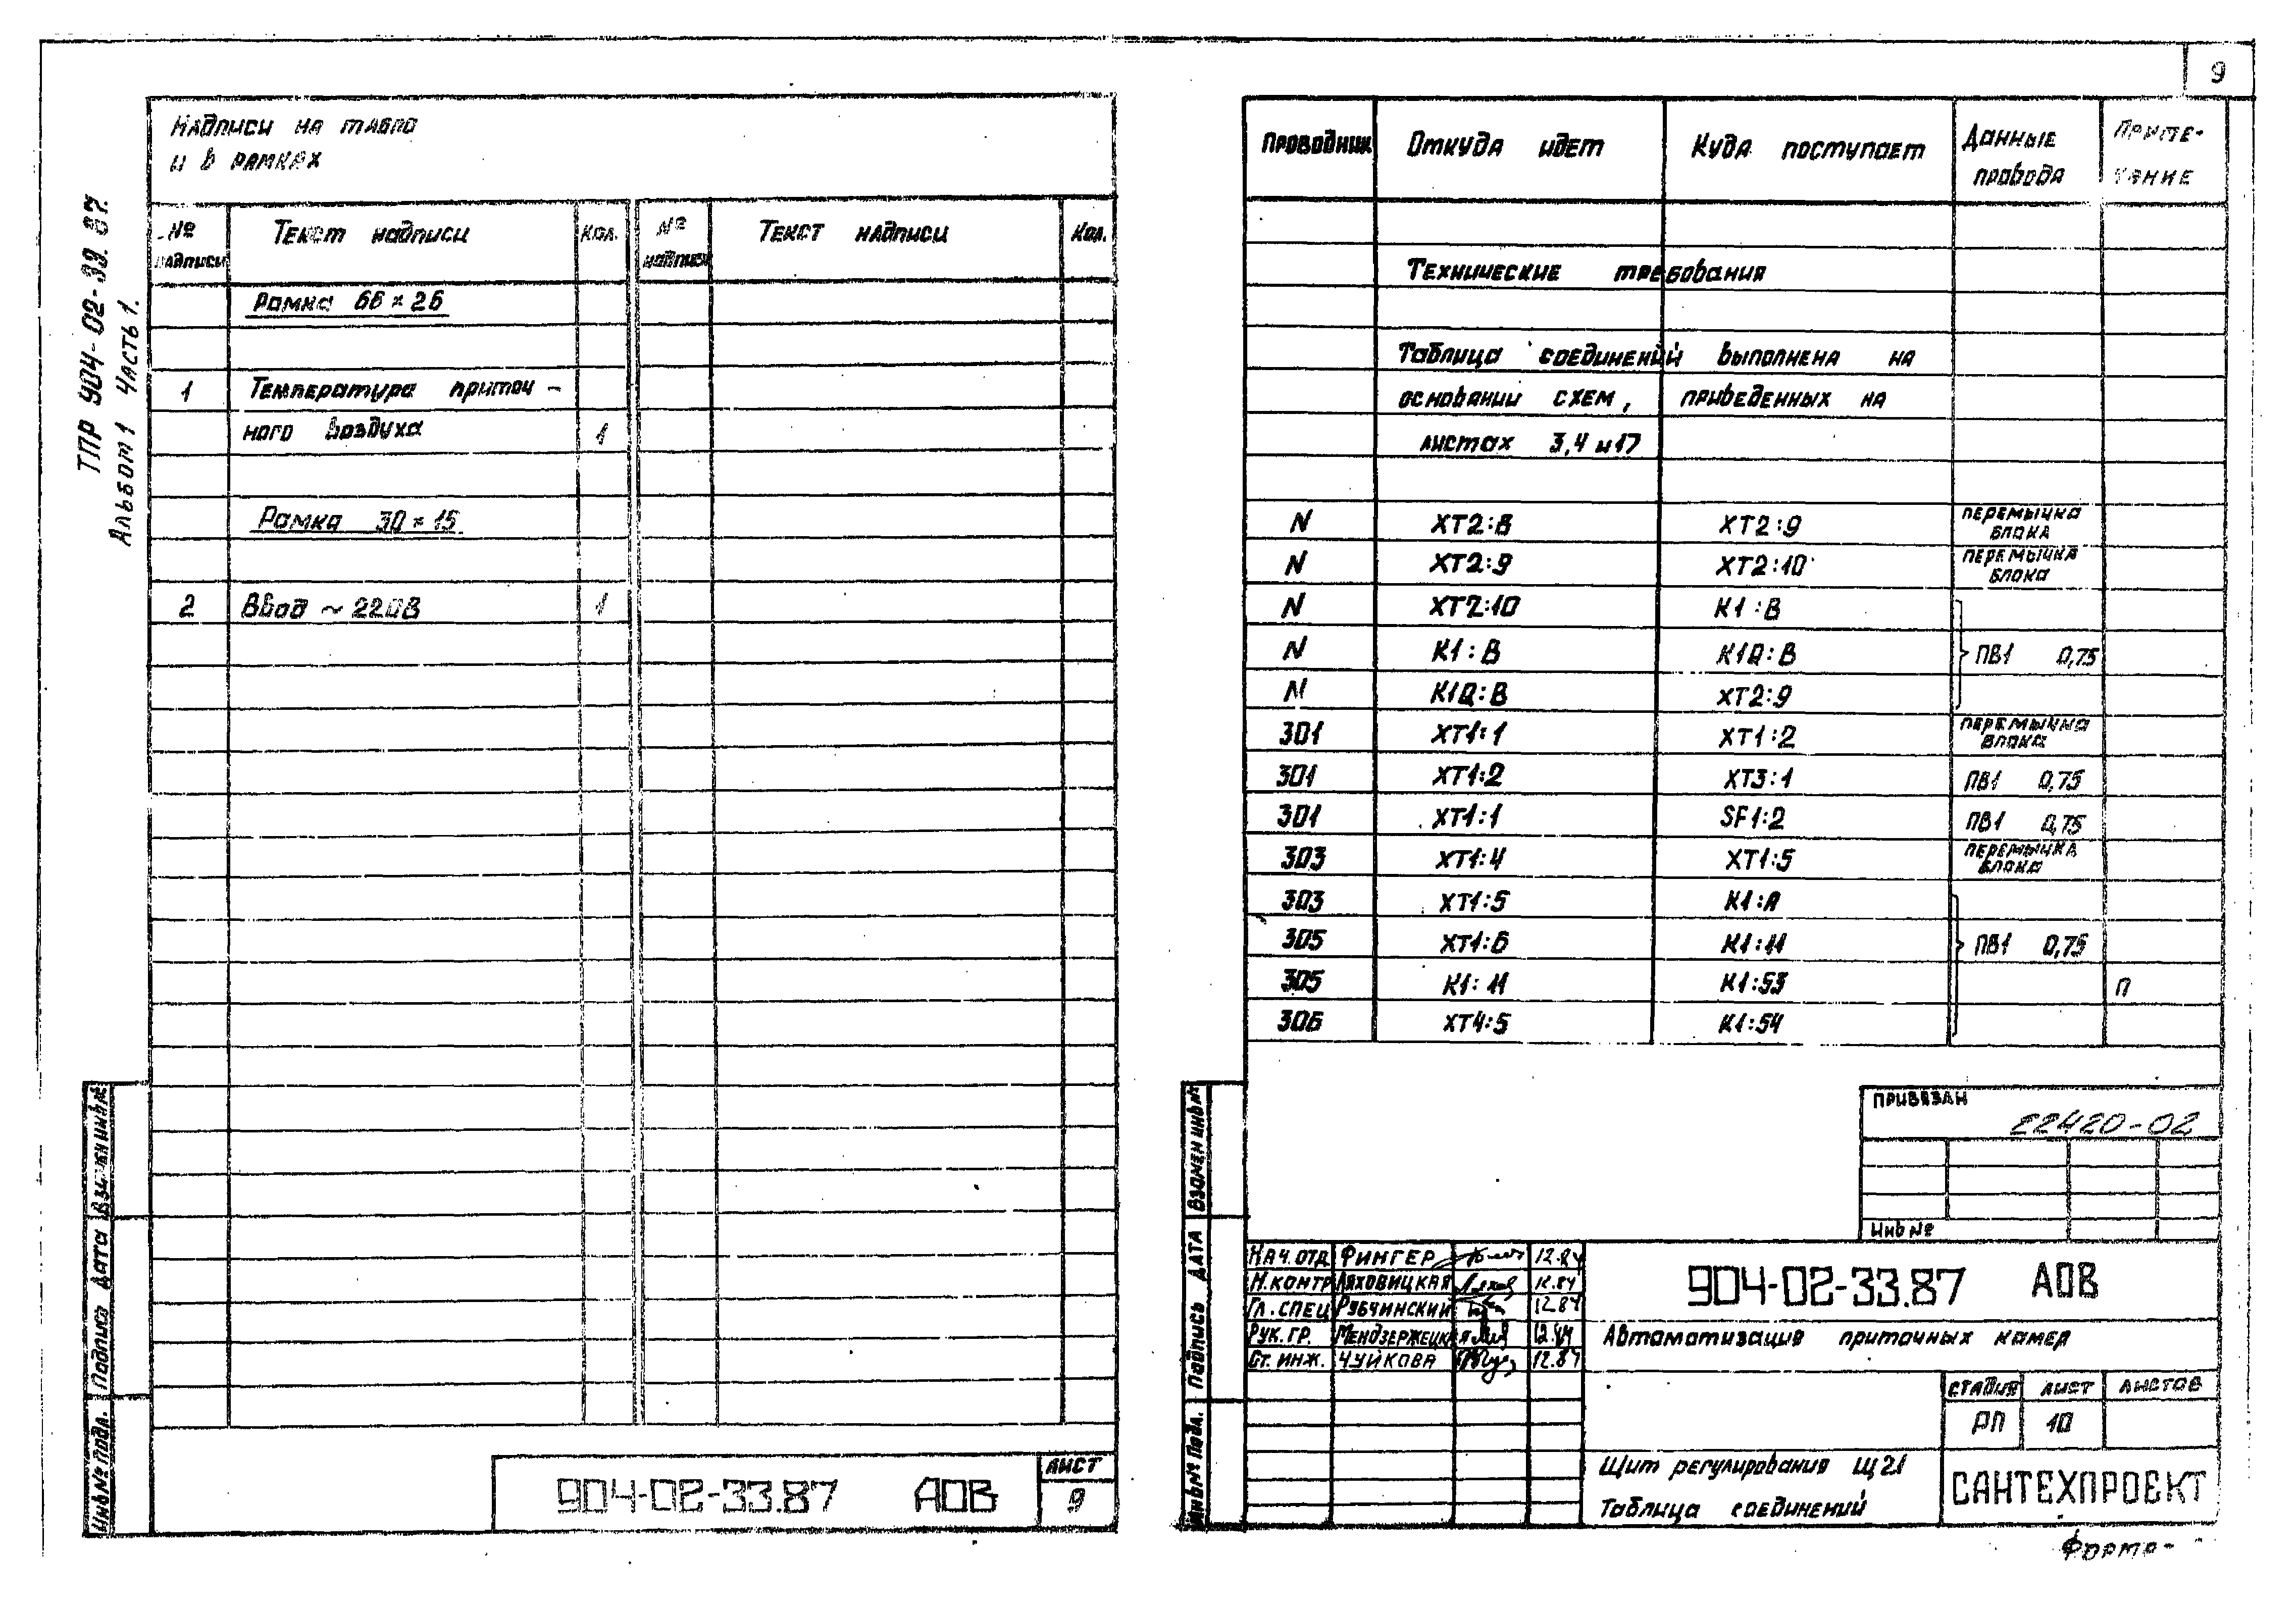 9
ТПР 904-02-33.87.
Альбом 1 Часть 1.
Надписи на табло
и в рамках
№ надписи Текст надписи Кол. № надписи Текст надписи Кол.
Рамка 66 × 26
1 Температура приточ-
ного воздуха 1
Рамка 30 × 15
2 Ввод ~ 220В 1
904-02-33.87 АОВ
Лист
9
Инв № подл. Подпись Дата Взамен инв №
Проводник Откуда идет Куда поступает Данные провода Приме-чание
Технические требования
Таблица соединений выполнена на
основании схем, приведенных на
листах 3,4 и 17
N ХТ2:8 ХТ2:9 перемычка блока
N ХТ2:9 ХТ2:10 перемычка блока
N ХТ2:10 К1:В
N К1:В К1Q:В ПВ1 0,75
N К1Q:В ХТ2:9
301 ХТ1:1 ХТ1:2 перемычка блока
301 ХТ1:2 ХТ3:1 ПВ1 0,75
301 ХТ1:1 SF1:2 ПВ1 0,75
303 ХТ1:4 ХТ1:5 перемычка блока
303 ХТ1:5 К1:А
305 ХТ1:6 К1:11 ПВ1 0,75
305 К1:11 К1:53 П
306 ХТ4:5 К1:54
Привязан
22420-02
Инв №
Инв № подл. Подпись Дата Взамен инв №
Нач. отд Фингер 12.84
Н. контр Ляховицкая 12.84
Гл. спец Рубчинский 12.84
Рук. гр. Мендзержецкая 12.84
Ст. инж. Чуйкова 12.84
904-02-33.87 АОВ
Автоматизация приточных камер
Стадия Лист Листов
РП 10
Щит регулирования Щ21
Таблица соединений
САНТЕХПРОЕКТ
Форма-